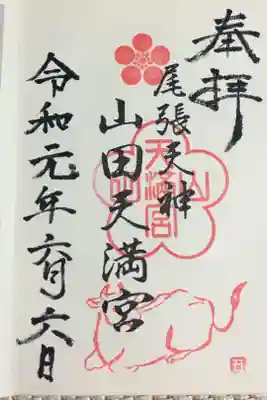 奉拝
尾張天神
山田天満宮
令和元年六月六日
山田
天満宮